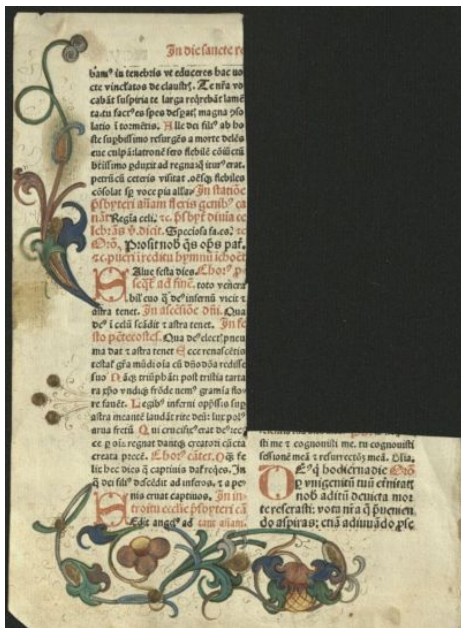 In die sancte re
bam⁹ in tenebris vt educeres hac uo
cte vinclatos de claustꝭ. Te nr̄a vo
cabāt suspiria te larga reqrebāt lamē
ta. tu fact⁹ es spes despat̄. magna ꝯso
latio ī tormētis. Alle dei fili⁹ ab ho
ste supbissimo resurgēs a morte delēs
eue culpā: latronē sero flebilē cōiūctū
btīssimo ꝓduxit ad regna
petrū cū ceteris visitat
cōsolat sp voce pia alla. In statiōe
psbyteri aliam flexis genib⁹ ca
nāt Regīa celi. ꝛc. psbyt diuīa ec
lebrās v̄. dicit. Speciosa fa. es. ꝛc
Orō. Prosit nob qs ops pat̄.
ꝛc. pueri ī reditu hymnū īchoēt
Salue festa dies. Chor⁹ p
seqt̄ ad finē. toto venera
bil euo q̄ de⁹ infernū vicit ꝛ
astra tenet. In ascēsiōe dn̄i. Qua
de⁹ ī celū scādit ꝛ astra tenet. In fe
sto pētecostes. Qua de⁹ elect̄ pneu
ma dat ꝛ astra tenet Ecce renascētis
testat̄ gr̄a mūdi oīa cū dn̄o dōa redisse
suo Nāqꝫ triūphāti post tristia tarta
ra xp̄o vndiqꝫ frōde nem⁹ gramīa flo
re fauēt. Legib⁹ inferni oppssis sup
astra meantē laudāt rite deū: lux pol⁹
arua fretū Qui crucifix⁹ erat de⁹ ec
ce p oīa regnat dantqꝫ creatori cūcta
creata precē. Chor⁹ cātet. Qꝫ fe
lix hec dies q̄ captiuis dat̄ reqes. In
q̄ dei fili⁹ descēdit ad inferos. ꝛ a pe
nis eruat captiuos. In in
troitu ecclīe psbyteri cā
Sedit angel⁹ ad
sti me ꝛ cognouisti me. tu cognouisti
sessionē meā ꝛ resurrectōꝫ meā. Glīa.
De⁹ q̄ hodierna die Orō
p vnigenitū tuū et̄nitat̄
nob aditū deuicta mor
te reserasti: vota nr̄a q̄ pueuien
do aspiras: etiā adiuuādo pse